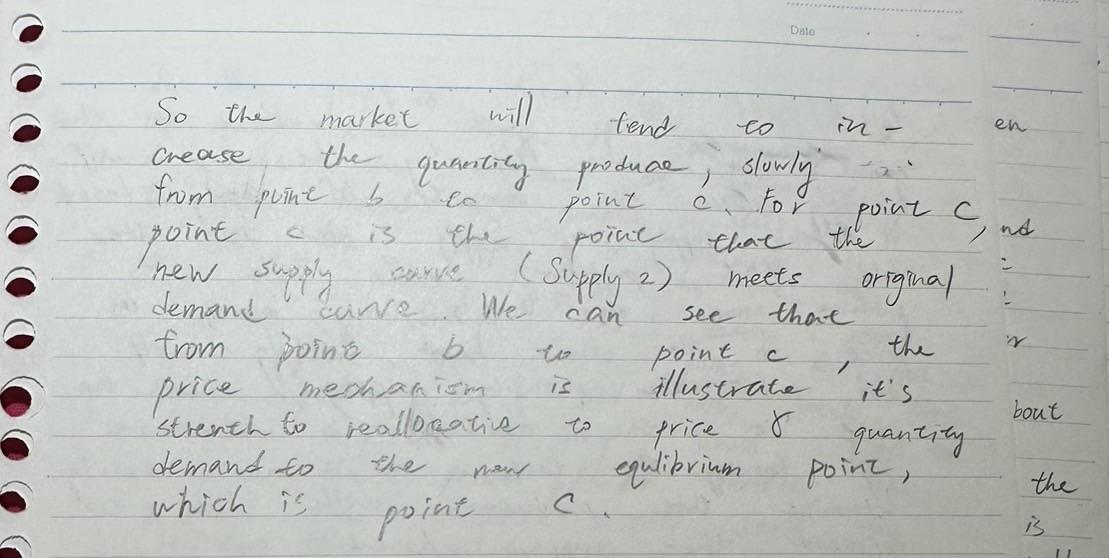 Date
So the market will tend to in-
crease the quantity produce, slowly
from point b to point c. For point c,
point c is the point that the
new supply curve (Supply 2) meets original
demand curve. We can see that
from point b to point c, the
price mechanism is illustrate it's
strenth to reallocative to price & quantity
demand to the new equlibrium point,
which is point c.
en
nd
r
bout
the
is